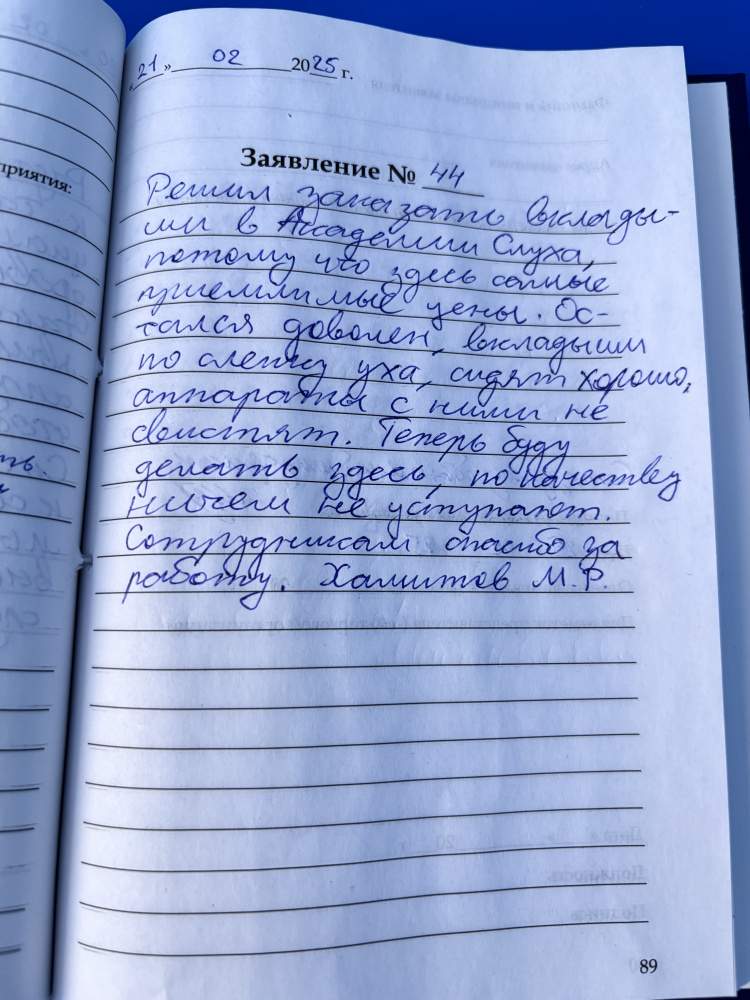 приятия:
ть.
«21» 02 2025 г.
Заявление № 44
Решил заказать вклады-
ши в Академии Слуха,
потому что здесь самые
приемлимые цены. Ос-
тался доволен, вкладыши
по слепку уха, сидят хорошо,
аппараты с ними не
свистят. Теперь буду
делать здесь, по качеству
ничем не уступают.
Сотрудникам спасибо за
работу. Хамитов М.Р.
89